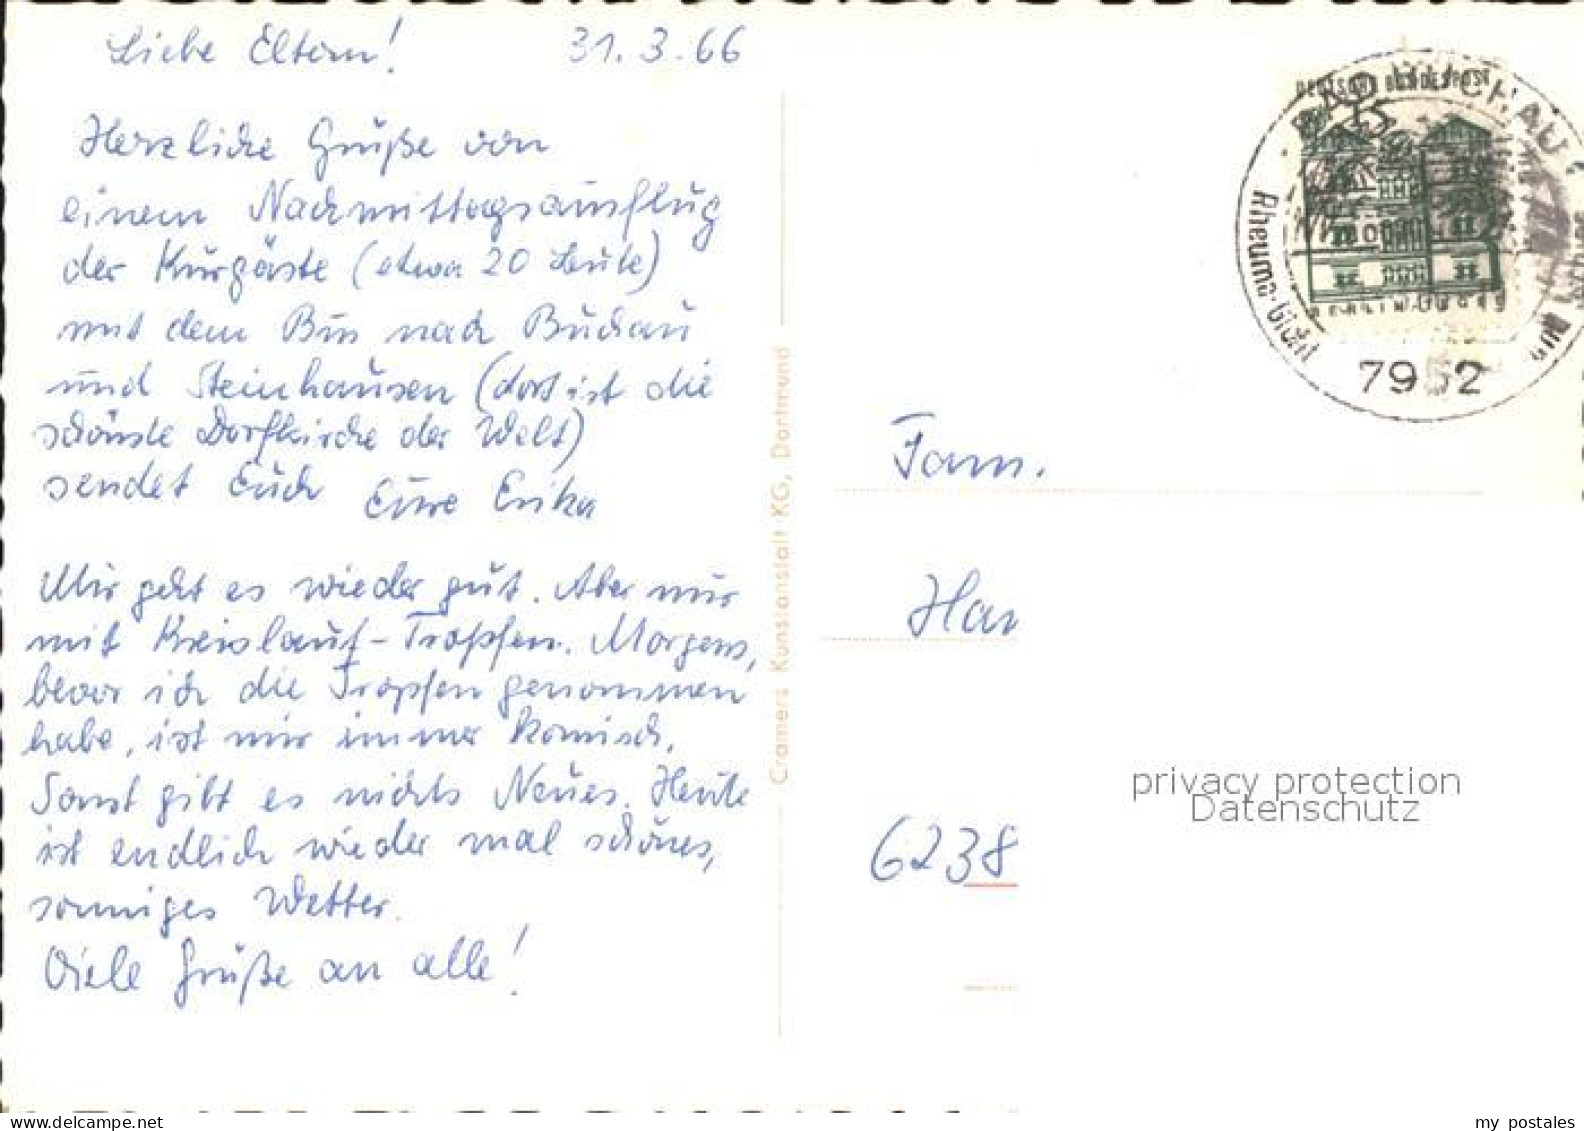 Liebe Eltern! 31.3.66
Herzliche Grüße von
einem Nachmittagsausflug
der Kurgäste (etwa 20 Leute)
mit dem Bus nach Buchau
und Steinhausen (dort ist die
schönste Dorfkirche der Welt)
sendet Euch Eure Erika
Mir geht es wieder gut. Aber nur
mit Kreislauf-Tropfen. Morgens,
bevor ich die Tropfen genommen
habe, ist mir immer komisch.
Sonst gibt es nichts Neues. Heute
ist endlich wieder mal schönes,
sonniges Wetter.
Viele Grüße an alle!
Cramers Kunstanstalt KG, Dortmund
DEUTSCHE BUNDESPOST
15
BERLIN
BAD BUCHAU
Rheuma·Gicht
und
7952
Fam.
Han
6238
privacy protection
Datenschutz
my postales
www.delcampe.net